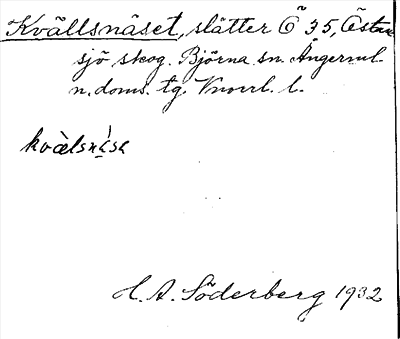 Kvällsnäset, slätter Ö 35, Östan
sjö skog. Björna sn. Ångerml.
n. doms. tg. Vnorrl. l.
kvälsnäsa
H. A. Söderberg 1932